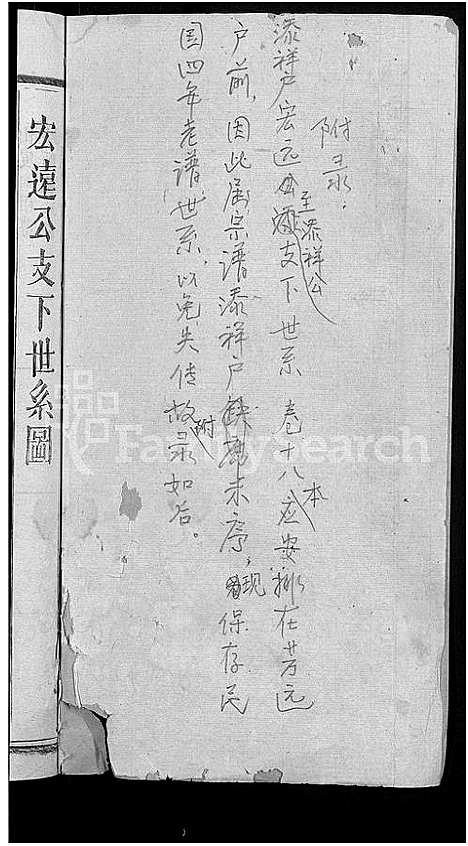 附录.
添祥户宏远公至添祥公支下世系 卷十八本应安排在芳远
户前,因此属宗谱添祥户未序,现保存民
国四年老谱世系,以免失传故附录如后。
宏遠公支下世系圖
FamilySearch